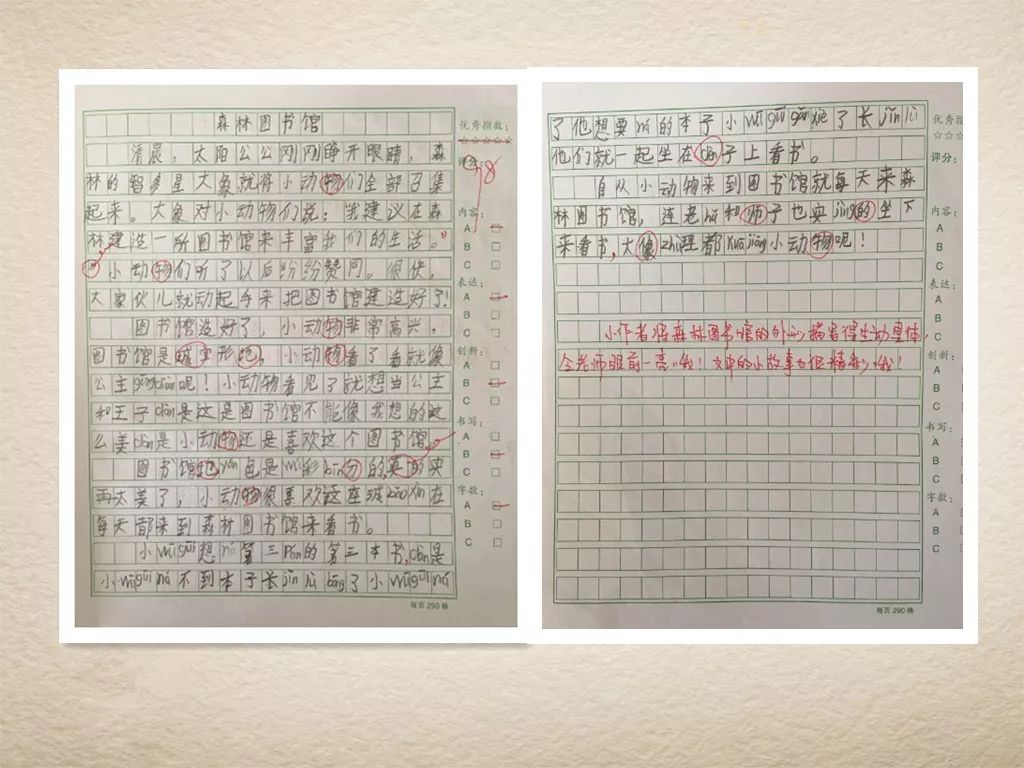 森林图书馆
清晨，太阳公公刚刚睁开眼睛，森
林的智多星大象就将小动物们全部召集
起来。大象对小动物们说：我建议在森
林建造一所图书馆来丰富我们的生活。”
小动物们听了以后纷纷赞同。很快，
大家伙儿就动起手来把图书馆建造好了！
图书馆造好了，小动物非常高兴，
图书馆是城宝形的，小动物看了看就像
公主gōngdiàn呢！小动物看见了就想当公主
和王子dàn是这是图书馆不能像我想的这
么美dàn是小动物还是喜欢这个图书馆。
图书馆地yán色是wǔ彩bīn分的，真的
再太美了，小动物很喜欢这座城bǎo xiàn在
每天都来到森林图书馆来看书。
小wūguī想ná第三pái的第三本书，dàn是
小wūguī ná不到本子长jǐng lù bāng了小wūguī ná
了他想要ná的本子小wūguī gǎn xiè了长jǐng lù
他们就一起坐在子上看书。
自从小动物来到图书馆就每天来森
林图书馆，连老hǔ和师子也安jìng的坐下
来看书，大像zhǔ理都kuā jiǎng小动物呢！
小作者将森林图书馆的外形描写得生动具体，
令老师眼前一亮哦！文中的小故事也很精彩哦！
优秀指数：
☆☆☆☆☆
评分：
98
内容：
A
B
C
表达：
A
B
C
创新：
A
B
C
书写：
A
B
C
字数：
A
B
C
每页 290 格
优秀指
☆☆☆
评分：
内容：
A
B
C
表达：
A
B
C
创新：
A
B
C
书写：
A
B
C
字数：
A
B
C
每页 290 格